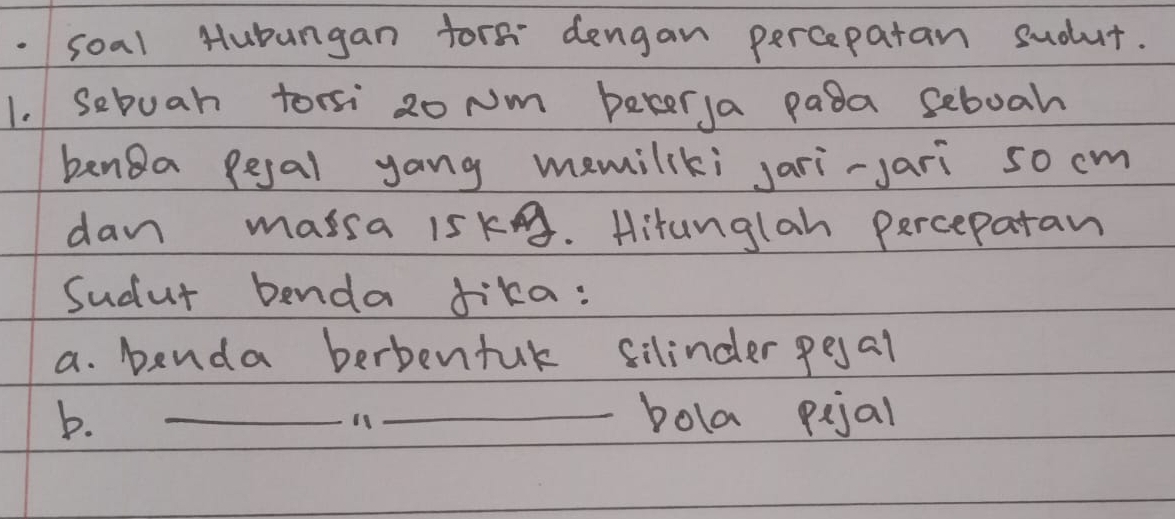 . soal Hubungan torsi dengan percepatan sudut.
1. Sebuah torsi 20 Nm bekerja pada sebuah
benda pejal yang memiliki jari-jari 50 cm
dan massa 15 kg. Hitunglah percepatan
sudut benda jika:
a. benda berbentuk silinder pejal
b. ———"——— bola pejal